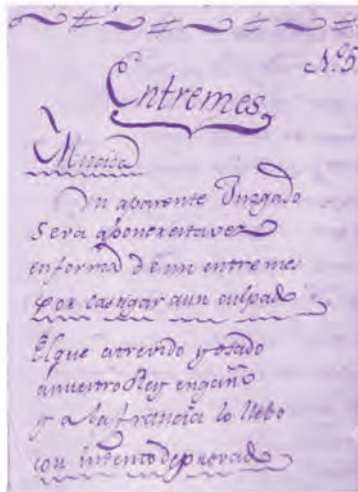 N.º 5
Entremes
Musica
Un aparente Juzgado
Sera aponer esta vez
enforma de un entremes
por castigar aun culpado
El que atrevido y osado
anuestro Rey engañó
y a la francia lo llebo
con intento depravado